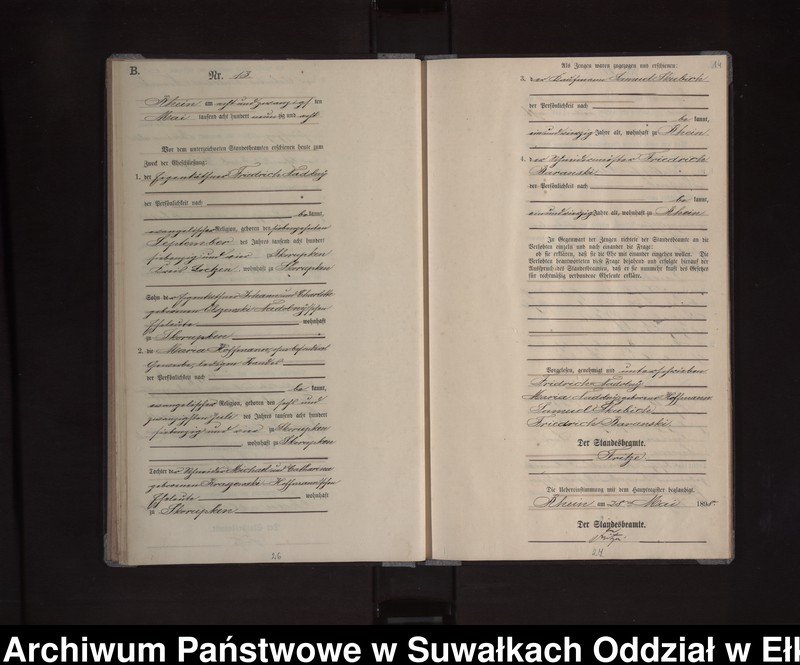 B.
Nr. 13.
Rhein am acht und zwanzigsten
Mai tausend acht hundert neunzig und acht
Vor dem unterzeichneten Standesbeamten erschienen heute zum
Zweck der Eheschließung:
1. der Eigenkäthner Friedrich Naddnÿ
der Persönlichkeit nach
be kannt,
evangelischer Religion, geboren den
September des Jahres tausend acht hundert
siebenzig und zu Skorupken
, wohnhaft zu Skorupken
Sohn der Eigenkäthner Johann und Charlotte
geborenen Olszewski
Eheleute wohnhaft
zu Skorupken
2. die Maria Hoffmann, ohne besonderes
Gewerbe, ledigen Standes
der Persönlichkeit nach
be kannt,
evangelischer Religion, geboren den sechs und
zwanzigsten Juli des Jahres tausend acht hundert
siebenzig und zu Skorupken
, wohnhaft zu Skorupken
Tochter der Schneider Michael und Catharina
geborenen Hoffmannschen
Eheleute wohnhaft
zu Skorupken
26
Als Zeugen waren zugezogen und erschienen:
3. der Kaufmann Samuel Skubich
der Persönlichkeit nach
be kannt,
Jahre alt, wohnhaft zu Rhein
4. der Schneidermeister Friedrich
Baranski
der Persönlichkeit nach
be kannt,
Jahre alt, wohnhaft zu Rhein
In Gegenwart der Zeugen richtete der Standesbeamte an die
Verlobten einzeln und nach einander die Frage:
ob sie erklären, daß sie die Ehe mit einander eingehen wollen. Die
Verlobten beantworteten diese Frage bejahend und erfolgte hierauf der
Ausspruch des Standesbeamten, daß er sie nunmehr kraft des Gesetzes
für rechtmäßig verbundene Eheleute erkläre.
Vorgelesen, genehmigt und unterschrieben
Friedrich
Maria geborene Hoffmann
Samuel Skubich
Friedrich Baranski
Der Standesbeamte.
Fritze
Die Uebereinstimmung mit dem Hauptregister beglaubigt.
Rhein am 28. Mai 1898.
Der Standesbeamte.
Fritze.
27.
Archiwum Państwowe w Suwałkach Oddział w Ełk